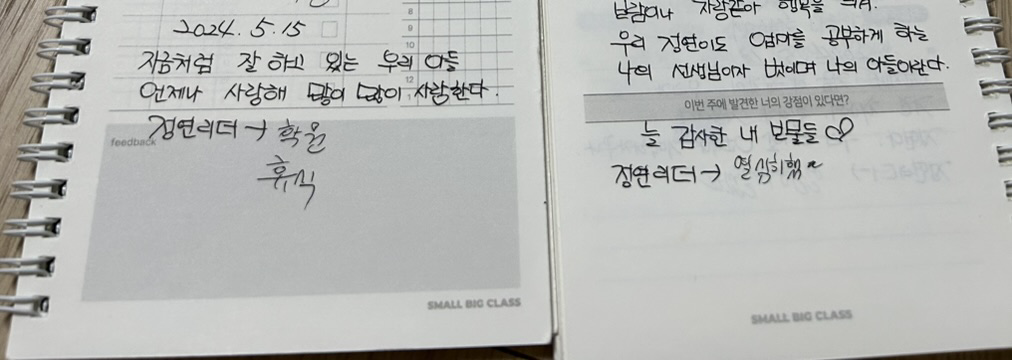 2024. 5. 15
8
9
10
지금처럼 잘 하고 있는 우리 아들
12
언제나 사랑해 많이 많이 사랑한다.
feedback
정연리더 → 학원
휴식
SMALL BIG CLASS
우리 정연이도 엄마를 공부하게 하는
나의 선생님이자 벗이며 나의 아들이란다.
이번 주에 발견한 너의 강점이 있다면?
늘 감사한 내 보물들
정연리더 → 열심히햄~
SMALL BIG CLASS